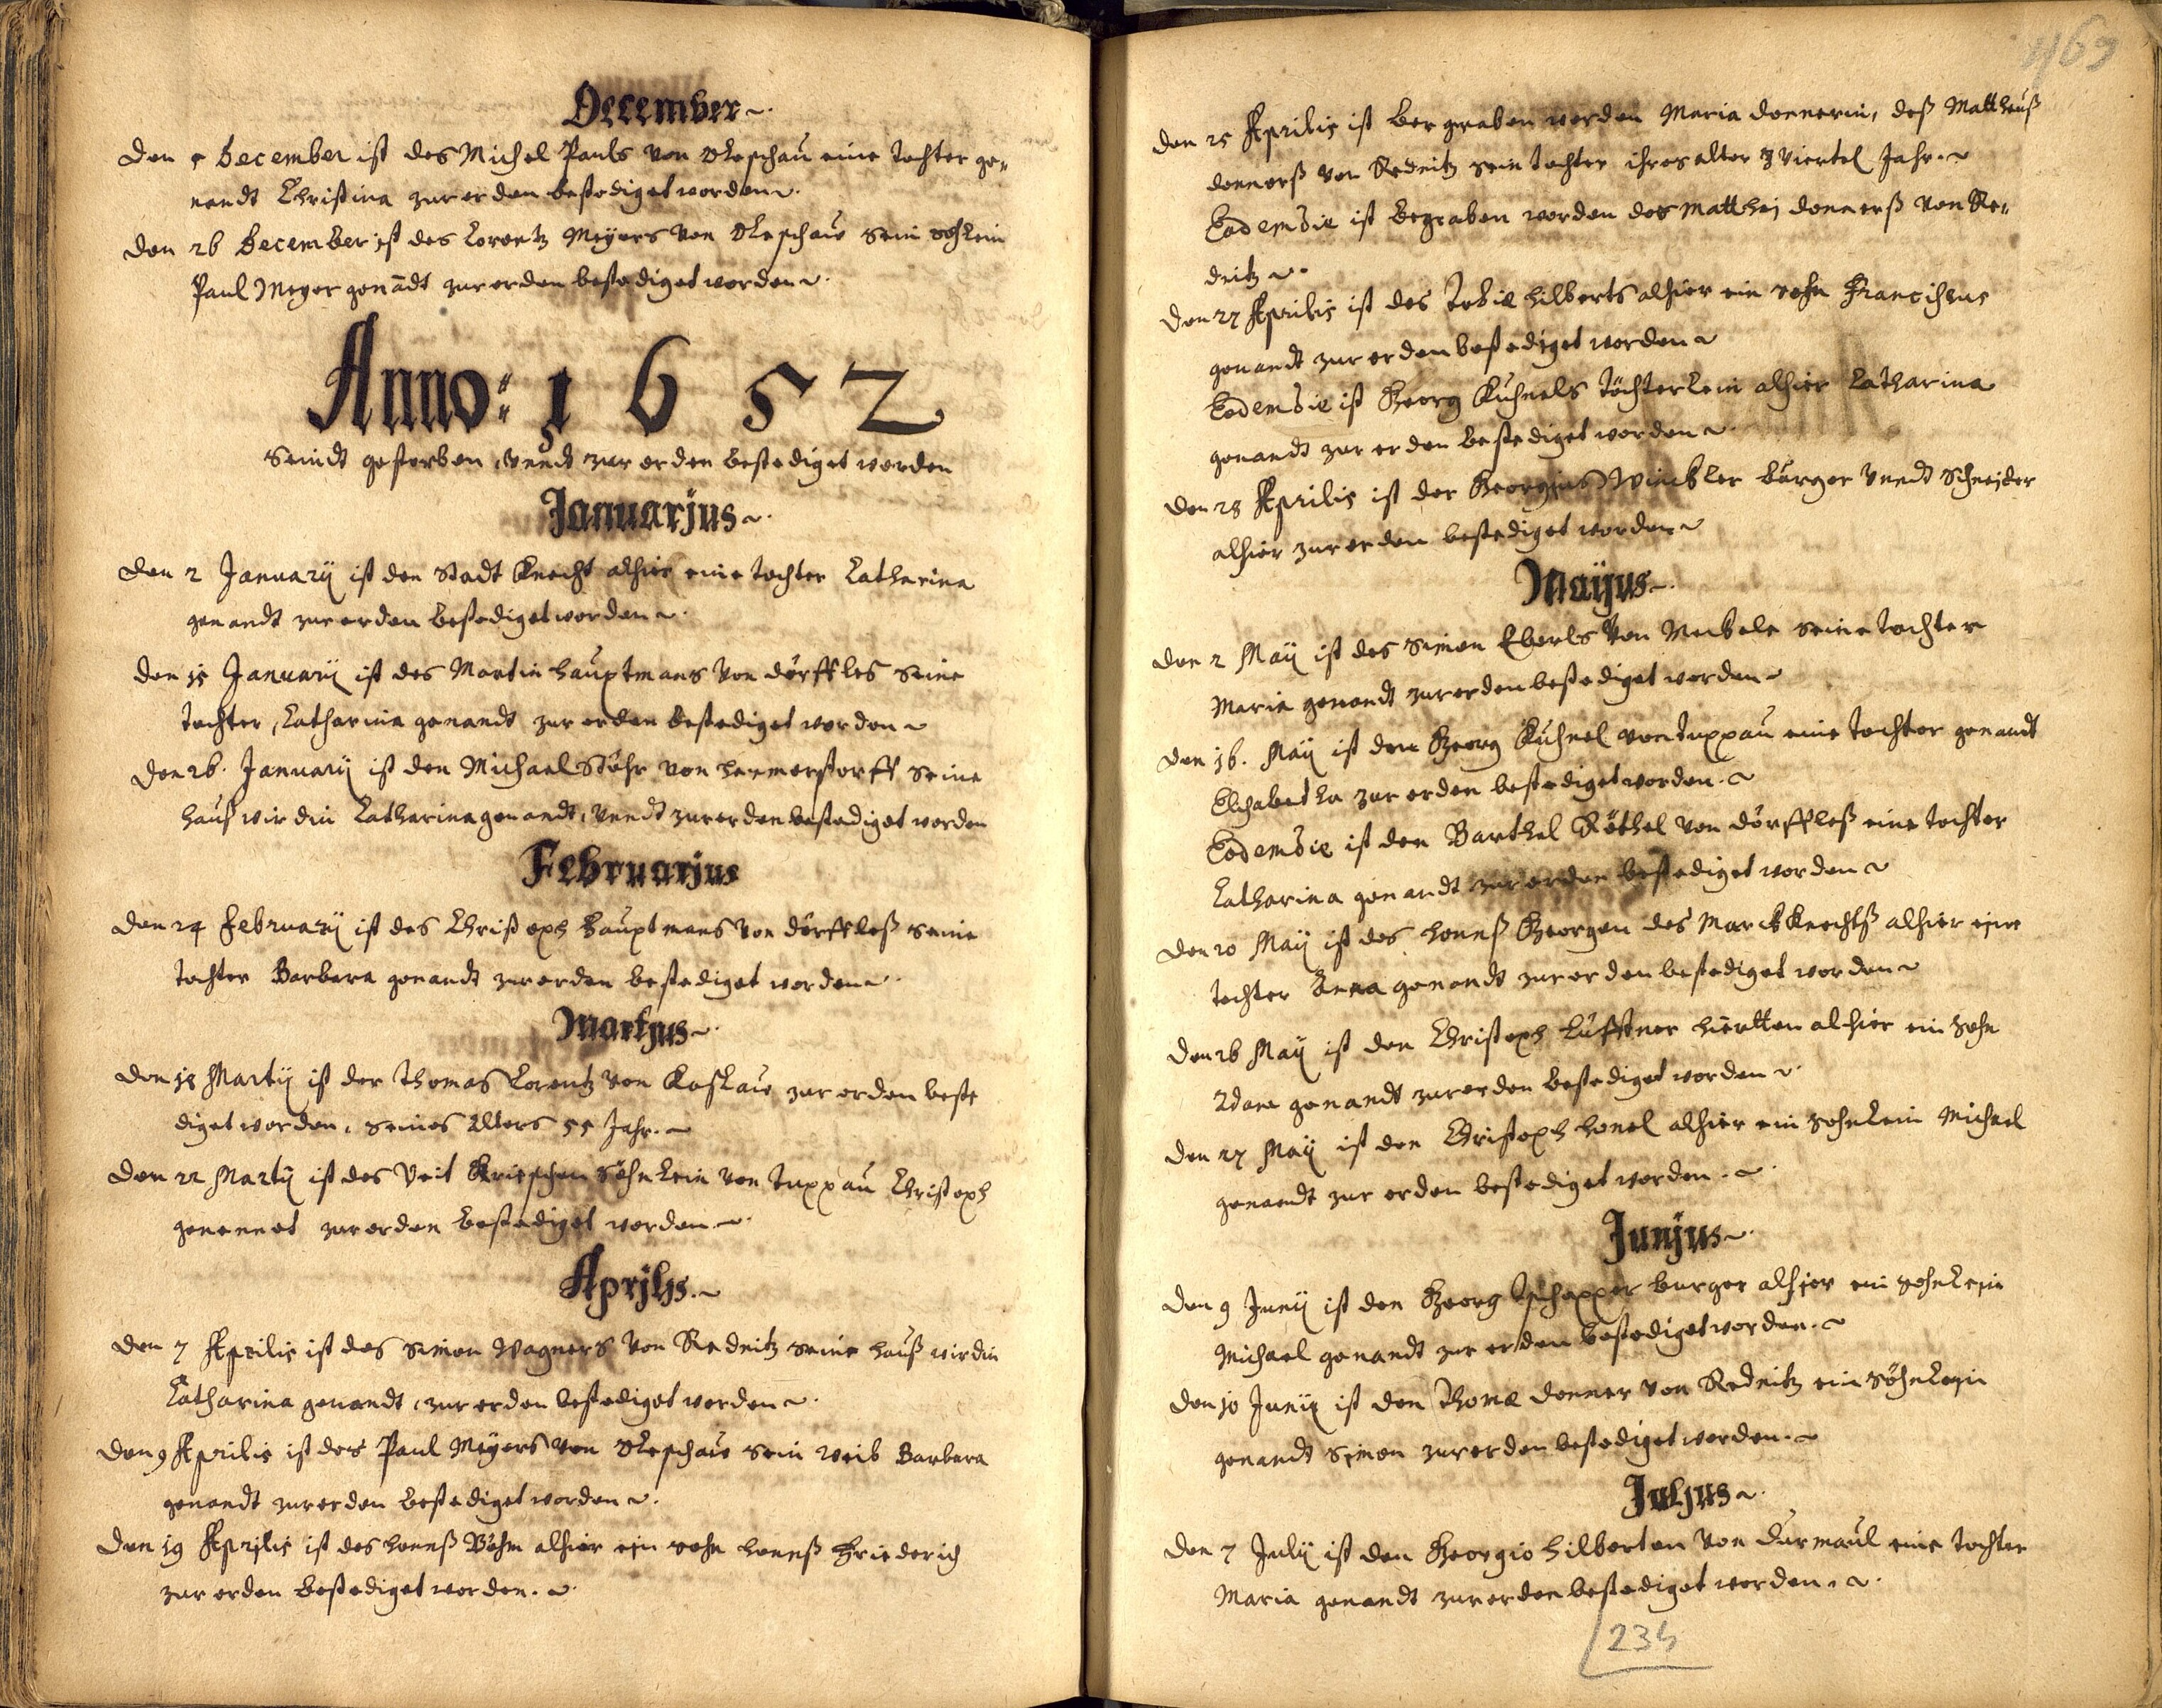 December
Den 5 December ist des Michel Pauls von Oleschau eine tochter ge„
nandt Christina zur erden bestediget worden
Den 26 December ist des Lorentz Meyers von Oleschau sein söhlein
Paul Meyer genādt zur erden bestediget worden
Anno: 1652
Seindt gestorben, vnndt zur erden bestediget worden
Januarjus
Den 2 Januarij ist den Stadt Knecht alhier eine tochter Catharina
genandt zur erden bestediget worden
Den 15 Januarij ist des Martin Hauptmans von dörffles seine
tochter, Catharina genandt zur erden bestediget worden
Den 26. Januarij ist den Michael Stöhr von seine
haus wirdin Catharina genandt, vnndt zur erden bestediget worden
Februarjus
Den 24 Februarij ist des Christoph Hauptmans von dörffleß seine
tochter Barbara genandt zur erden bestediget worden
Martjus
Den 18 Martij ist der Thomas Lorentz von Koslau zur erden beste
diget worden, seines Alters 55 Jahr.
Den 22 Martij ist des Veit söhnlein von Tuppau Christoph
genennet zur erden bestediget worden
Aprjljs
Den 7 Aprilis ist des Simon Wagners von Rednitz seine hauß wirdin
Catharina genandt, zur erden bestediget worden
Den 9 Aprilis ist des Paul Meyers von Oleschau sein weib Barbara
genandt zur erden bestediget worden
Den 19 Aprjlis ist des hannß Böhm alhier ejn sohn hannß Friederich
zur erden bestediget worden.
469
Den 25 Aprilis ist bergraben worden Maria donnerin, deß Mattheuß
donnerß von Rednitz sein tochter ihres alter 3 viertel Jahr.
Eodem die ist begraben worden des Matthej donnerß von Re„
dnitz
Den 27 Aprilis ist des Tobie Hilberts alhier ein sohn Franciscus
genandt zur erden bestediget worden
Eodem die ist Georg Kühnels töchterlein alhier Catharina
genandt zur erden bestediget worden
Den 28 Aprilis ist der Georgius Winckler bürger vnndt Schnejder
alhier zur erden bestediget worden
Maijus
Den 2 Maij ist des Simon Eberls von seine tochter
Maria genandt zur erden bestediget worden
Den 16. Maij ist den Georg Kühnel von Tuppau eine tochter genandt
Elisabetha zur erden bestediget worden.
Eodem die ist den Barthel Röthel von dörffleß eine tochter
Catharina genandt zur erden bestediget worden
Den 20 Maij ist des hannß Georgen des Marckknechtß alhier ejne
tochter Anna genandt zur erden bestediget worden
Den 26 Maij ist den Christoph Lüfftner hiertten alhier ein sohn
Adam genandt zur erden bestediget worden
Den 27 Maij ist den Christoph Honel alhier ein sohnlein Michael
genandt zur erden bestediget worden.
Junjus
Den 9 Junij ist den Georg Tschepper burger alhjer ein sohnlejn
Michael genandt zur erden bestediget worden.
Den 10 Junij ist den Thomæ donner von Rednitz ein söhnlejn
genandt Sjmon zur erden bestediget worden.
Juljus
Den 7 Julij ist den Georgio Hilberten von Durmaul eine tochter
Maria genandt zur erden bestediget worden.
234